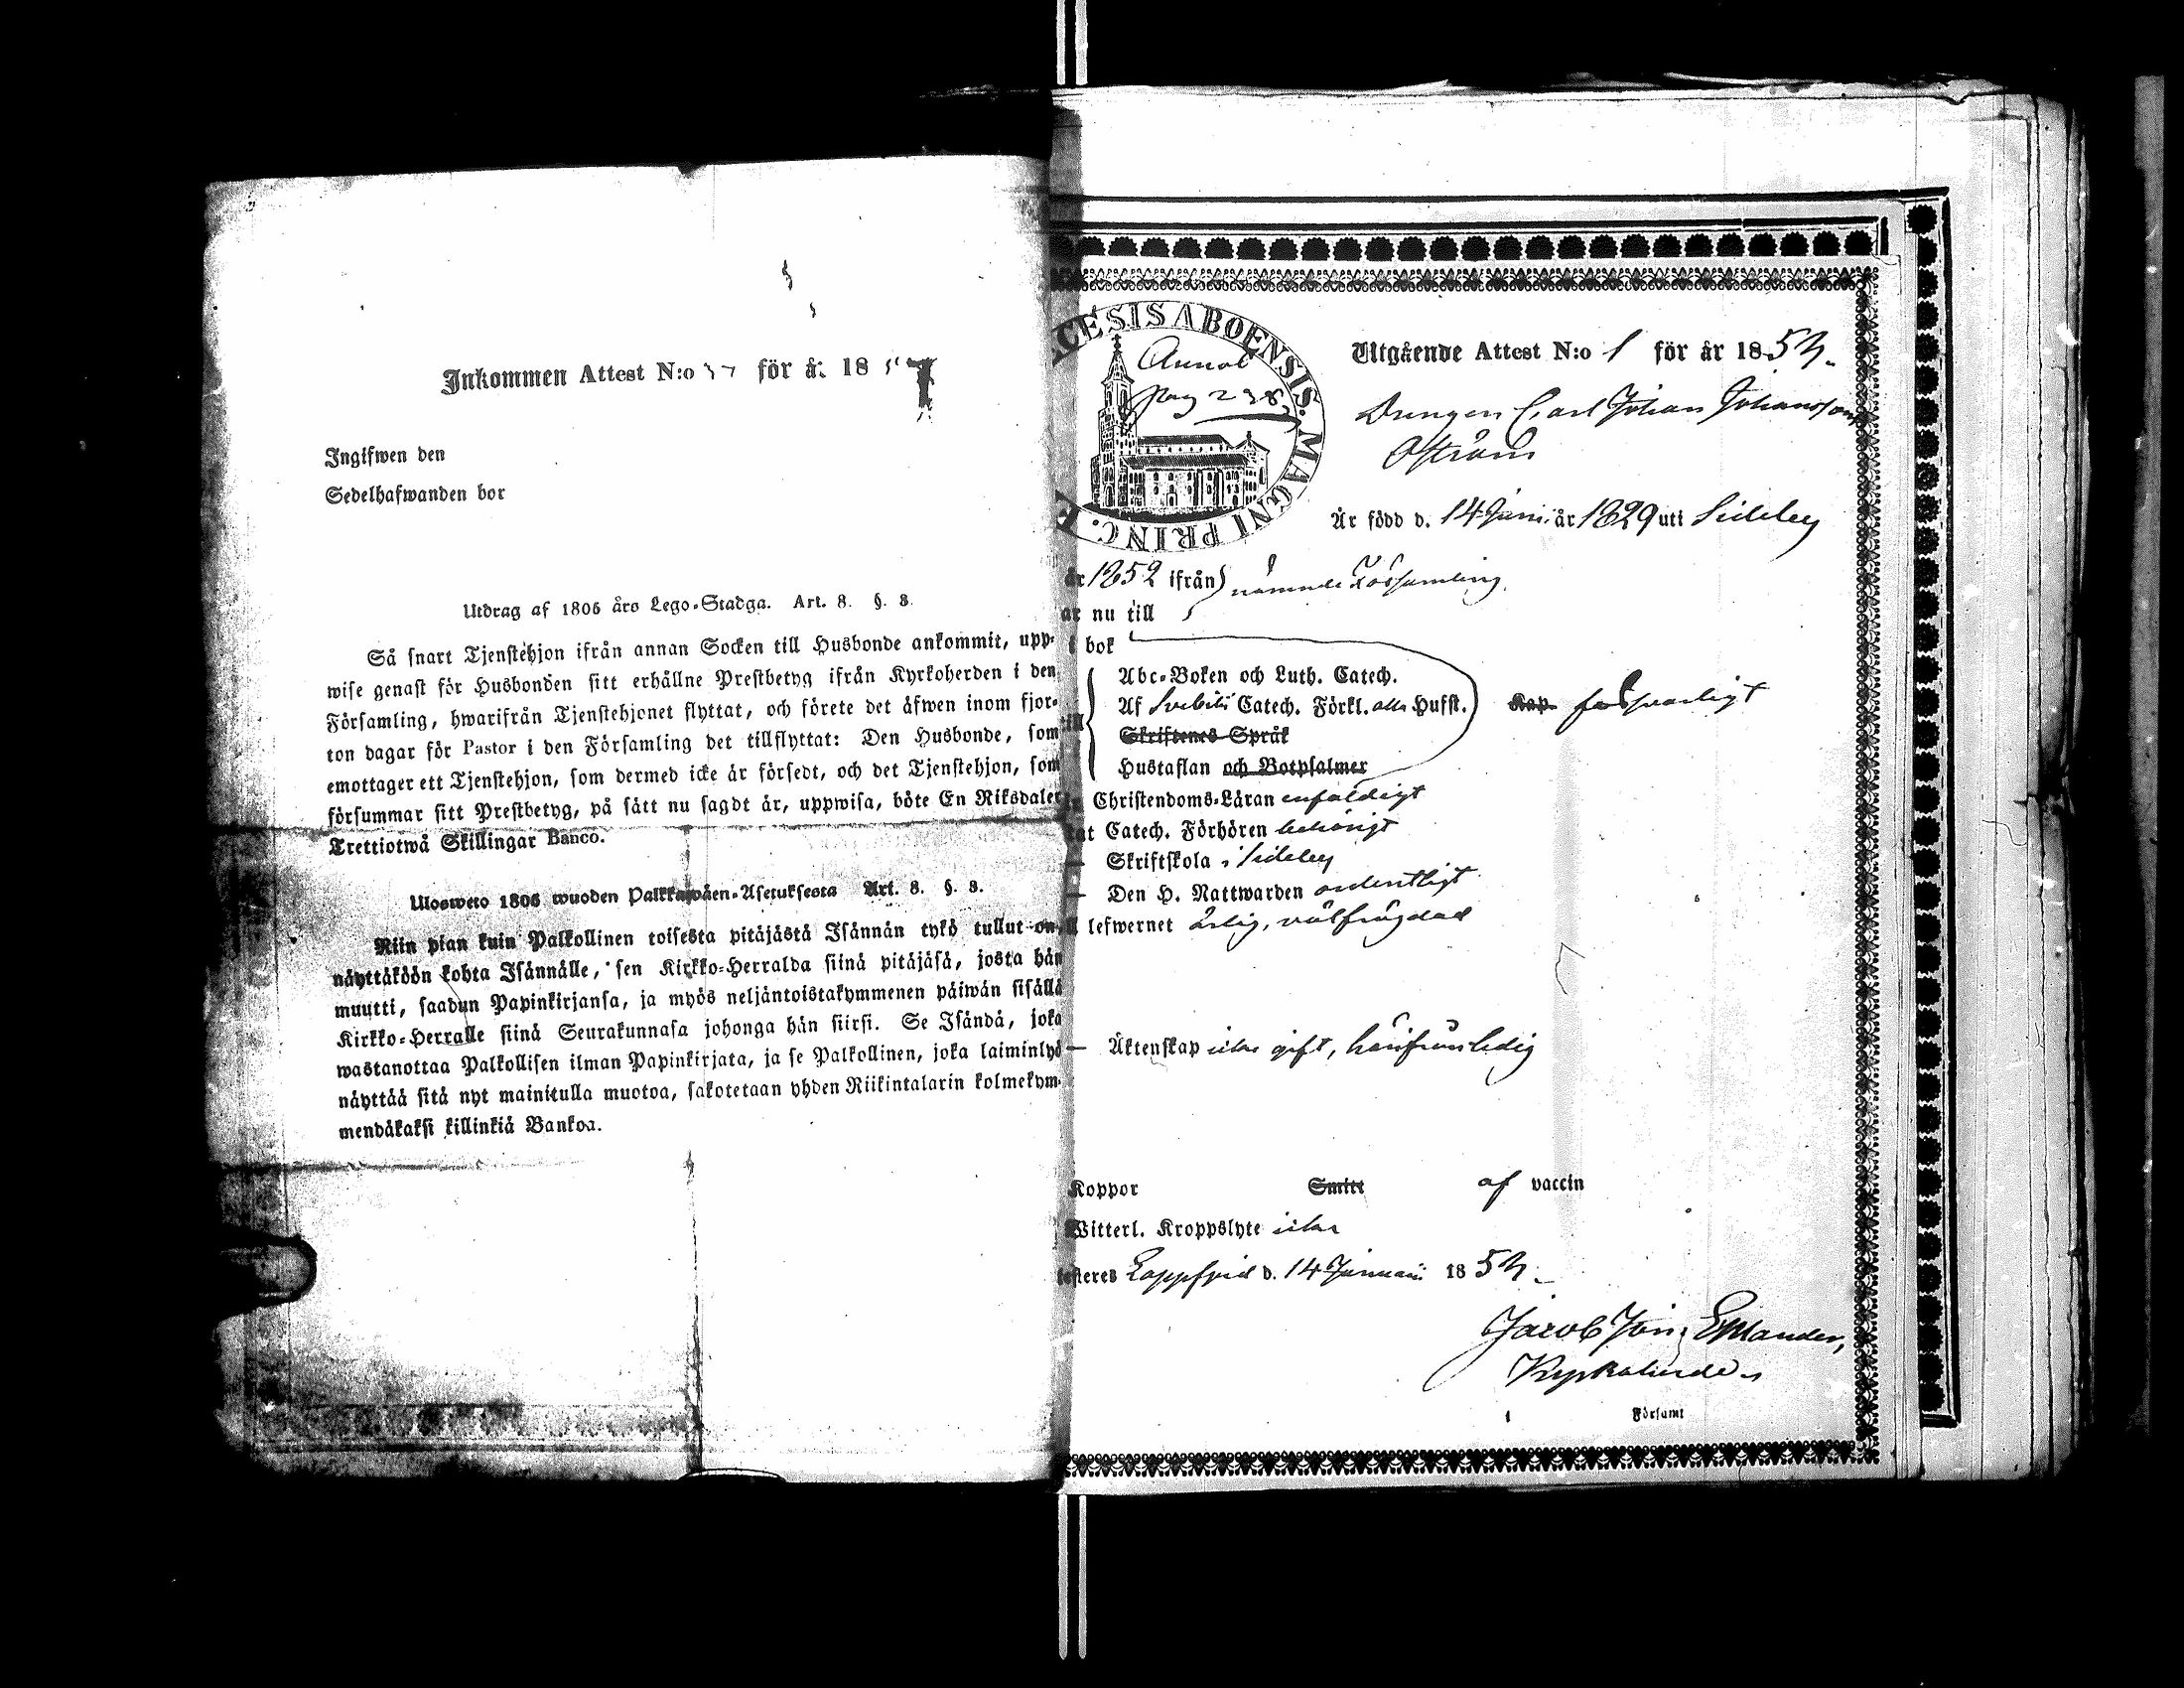 Inkommen Attest N:o 37 för år 18 57
Ingifwen den
Sedelhafwanden bor
Utdrag af 1805 års Lego-Stadga. Art. 8. §. 3.
Så snart Tjenstehjon ifrån annan Socken till Husbonde ankommit, upp-
wise genast för Husbonden sitt erhållne Prestbetyg ifrån Kyrkoherden i den
Församling, hwarifrån Tjenstehjonet flyttat, och förete det äfwen inom fjor-
ton dagar för Pastor i den Församling det tillflyttat: Den Husbonde, som
emottager ett Tjenstehjon, som dermed icke är försedt, och det Tjenstehjon, som
försummar sitt Prestbetyg, på sätt nu sagdt är, uppwisa, böte En Riksdaler
Trettiotwå Skillingar Banco.
Ulosweto 1805 wuoden Palkkawäen-Asetuksesta Art. 8. §. 3.
Niin pian kuin Palkollinen toisesta pitäjästä Isännän tykö tullut on,
näyttäköön kohta Isännälle, sen Kirkko-Herralda siinä pitäjäsä, josta hän
muutti, saadun Papinkirjansa, ja myös neljäntoistakymmenen päiwän sisällä
Kirkko-Herralle siinä Seurakunnasa johonga hän siirsi. Se Isändä, joka
wastanottaa Palkollisen ilman Papinkirjata, ja se Palkollinen, joka laiminlyö
näyttää sitä nyt mainitulla muotoa, sakotetaan yhden Riikintalarin kolmekym-
mendäkaksi killinkiä Bankoa.
CESIS ABOENSIS. MAGNI PRINC. F
Annot
pag 238
Utgående Attest N:o 1 för år 1853.
Drengen Carl Johan Johansson
Öström
Är född d. 14 Juni år 1829 uti Sideby
år 1852 ifrån nämnde Församling
ar nu till
t bok
Abc-Boken och Luth. Catech.
Af Svebilii Catech. Förkl. alla Hufst.
Kap försvarligt
till
Skriftenes Språk
Hustaflan och Botpsalmer
Christendoms-Läran enfaldigt
at Catech. Förhören behörigt
— Skriftskola i Sideby
— Den H. Nattwarden ordentligt
ll lefwernet ärlig, välfrägdad
— Äktenskap icke gift, härifrån ledig
Koppor Smitt af vaccin
Witterl. Kroppslyte icke
testeres Lappfjerd d. 14 Januari 1853.
Jacob Joh: Estlander,
Kyrkoherde
i Församl